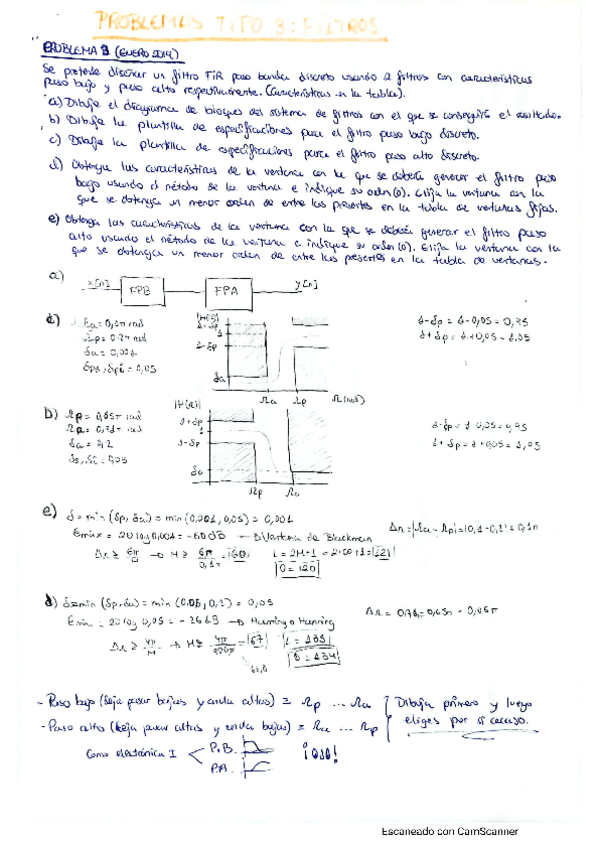 PROBLEMAS TIPO 3: FILTROS
PROBLEMA 3 (ENERO 2014)
Se pretende diseñar un filtro FIR paso banda discreto usando 2 filtros con características
paso bajo y paso alto respectivamente. (Características en la tabla).
a) Dibuje el diagrama de bloques del sistema de filtros con el que se conseguiría el resultado.
b) Dibuje la plantilla de especificaciones para el filtro paso bajo discreto.
c) Dibuje la plantilla de especificaciones para el filtro paso alto discreto.
d) Obtenga las características de la ventana con la que se debería generar el filtro paso
bajo usando el método de la ventana e indique su orden (O). Elija la ventana con la
que se obtenga un menor orden de entre las presentes en la tabla de ventanas fijas.
e) Obtenga las características de la ventana con la que se debería generar el filtro paso
alto usando el método de la ventana e indique su orden (O). Elija la ventana con la
que se obtenga un menor orden de entre las presentes en la tabla de ventanas.
a) x[n] FPB FPA y[n]
c) Ωa = 0,1π rad
Ωp = 0.2π rad
δa = 0,001
δps, δpi = 0,05
|H(Ω)|
1+δp
1
1-δp
δa
Ωa Ωp Ω(rad)
1-δp = 1-0,05 = 0,95
1+δp = 1+0,05 = 1.05
b) Ωp = 0,65π rad
δa = 0,2
δs, δi = 0,05
|H(Ω)|
1+δp
1
1-δp
δa
Ωp Ωa
1-δp = 1-0,05 = 0,95
1+δp = 1+0,05 = 1,05
e) δ = min (δp, δa) = min (0,001, 0,05) = 0,001
ΔΩ = |Ωa - Ωp| = |0,1-0,2| = 0,1π
Emáx = 20log0,001 = -60dB → Ventana de Blackman
ΔΩ ≥ 6π/M → M ≥ 6π/0,1π = 60
L = 2M+1 = 2·60+1 = 121
O = 120
d) δ = min (δp, δa) = min (0.05, 0,2) = 0,05
Emáx = 20log 0,05 = -26dB → Hamming o Hanning
ΔΩ ≥ 4π/M → M ≥ = 67
L = 135
O = 134
- Paso bajo (deja pasar bajas y anula altas) = Ωp ... Ωa
- Paso alto (deja pasar altas y anula bajas) = Ωa ... Ωp
Dibuja primero y luego
eliges por si acaso.
Como electrónica I
P.B.
P.A.
¡OJO!
Escaneado con CamScanner